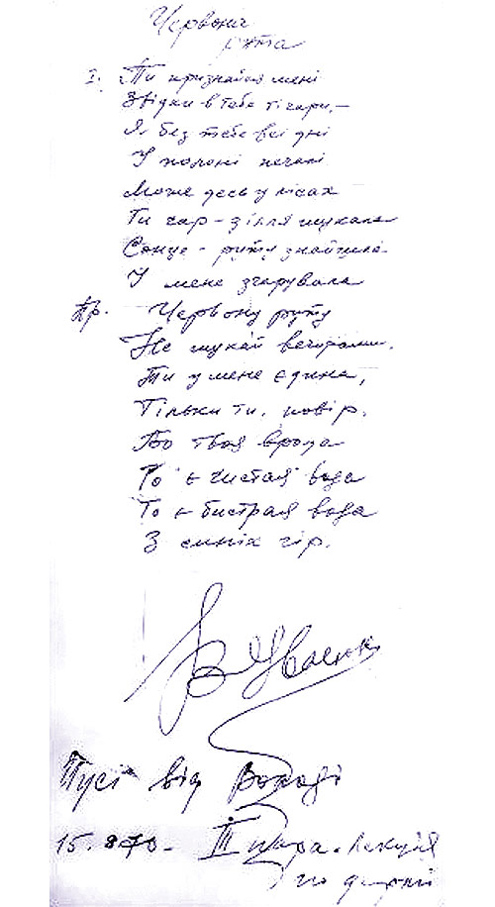 Червона
рута
I. Ти признайся мені
Звідки в тебе ті чари, –
Я без тебе всі дні
У полоні печалі
Може десь у лісах
Ти чар-зілля шукала
Сонце-руту знайшла
І мене зчарувала
Пр. Червону руту
Не шукай вечорами.
Ти у мене єдина,
Тільки ти, повір.
Бо твоя врода
То є чистая вода
То є бистрая вода
З синіх гір.
В Івасюк
Тусі від Володі
15.870 – III пара. Лекція